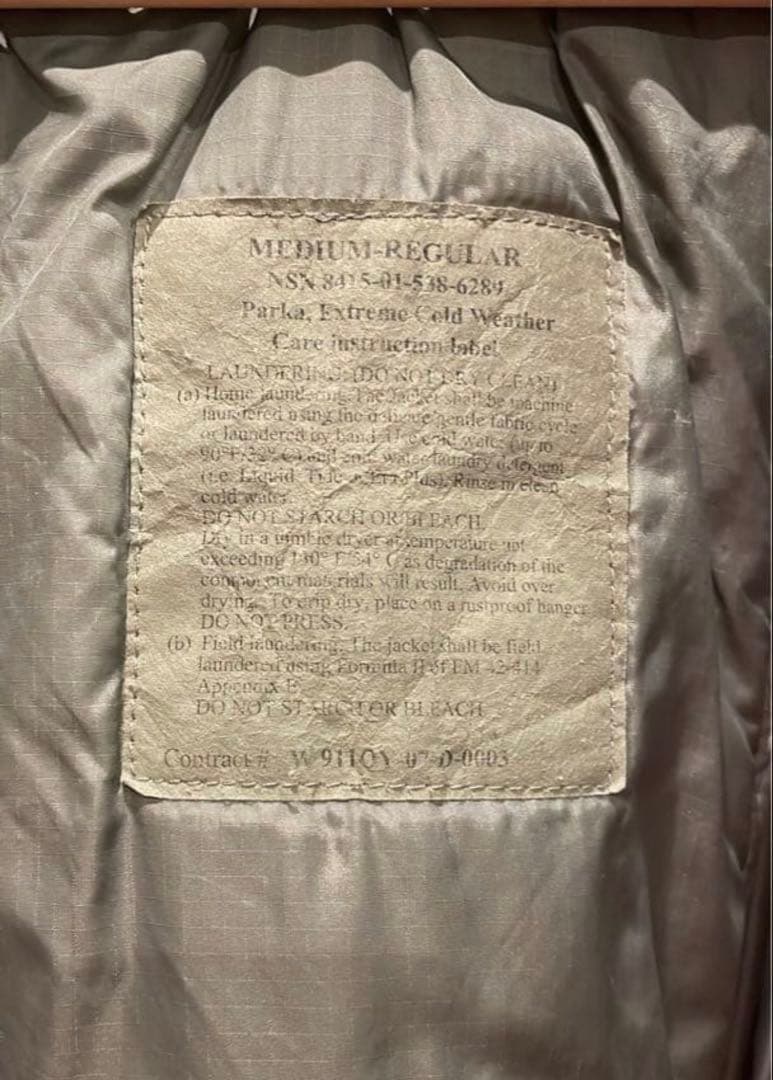 MEDIUM-REGULAR
NSN 8415-01-538-6289
Parka, Extreme Cold Weather
Care instruction label
LAUNDERING (DO NOT DRY CLEAN)
(a) Home laundering. The Jacket shall be machine
laundered using the delicate/gentle fabric cycle
or laundered by hand. Use cold water (up to
90°F/32° C) and cold water laundry detergent
(i.e. Liquid Tide or Era Plus). Rinse in clean
cold water.
DO NOT STARCH OR BLEACH.
Dry in a tumble dryer at temperature not
exceeding 130° F/54° C as degradation of the
component materials will result. Avoid over
drying. To drip dry, place on a rustproof hanger.
DO NOT PRESS.
(b) Field laundering. The jacket shall be field
laundered using Formula II of FM 42-414
Appendix E.
DO NOT STARCH OR BLEACH
Contract# W911QY-07-D-0003